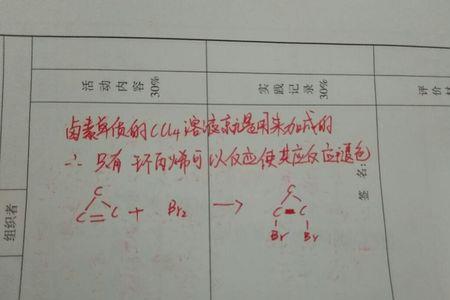 活动内容 30%
实践记录 30%
评价
签名:
组织者
卤素单质的CCl4溶液就是用来加成的
∴ 只有环丙烯可以反应使其应反应褪色
C
C=C + Br2 → C
C=C
Br Br